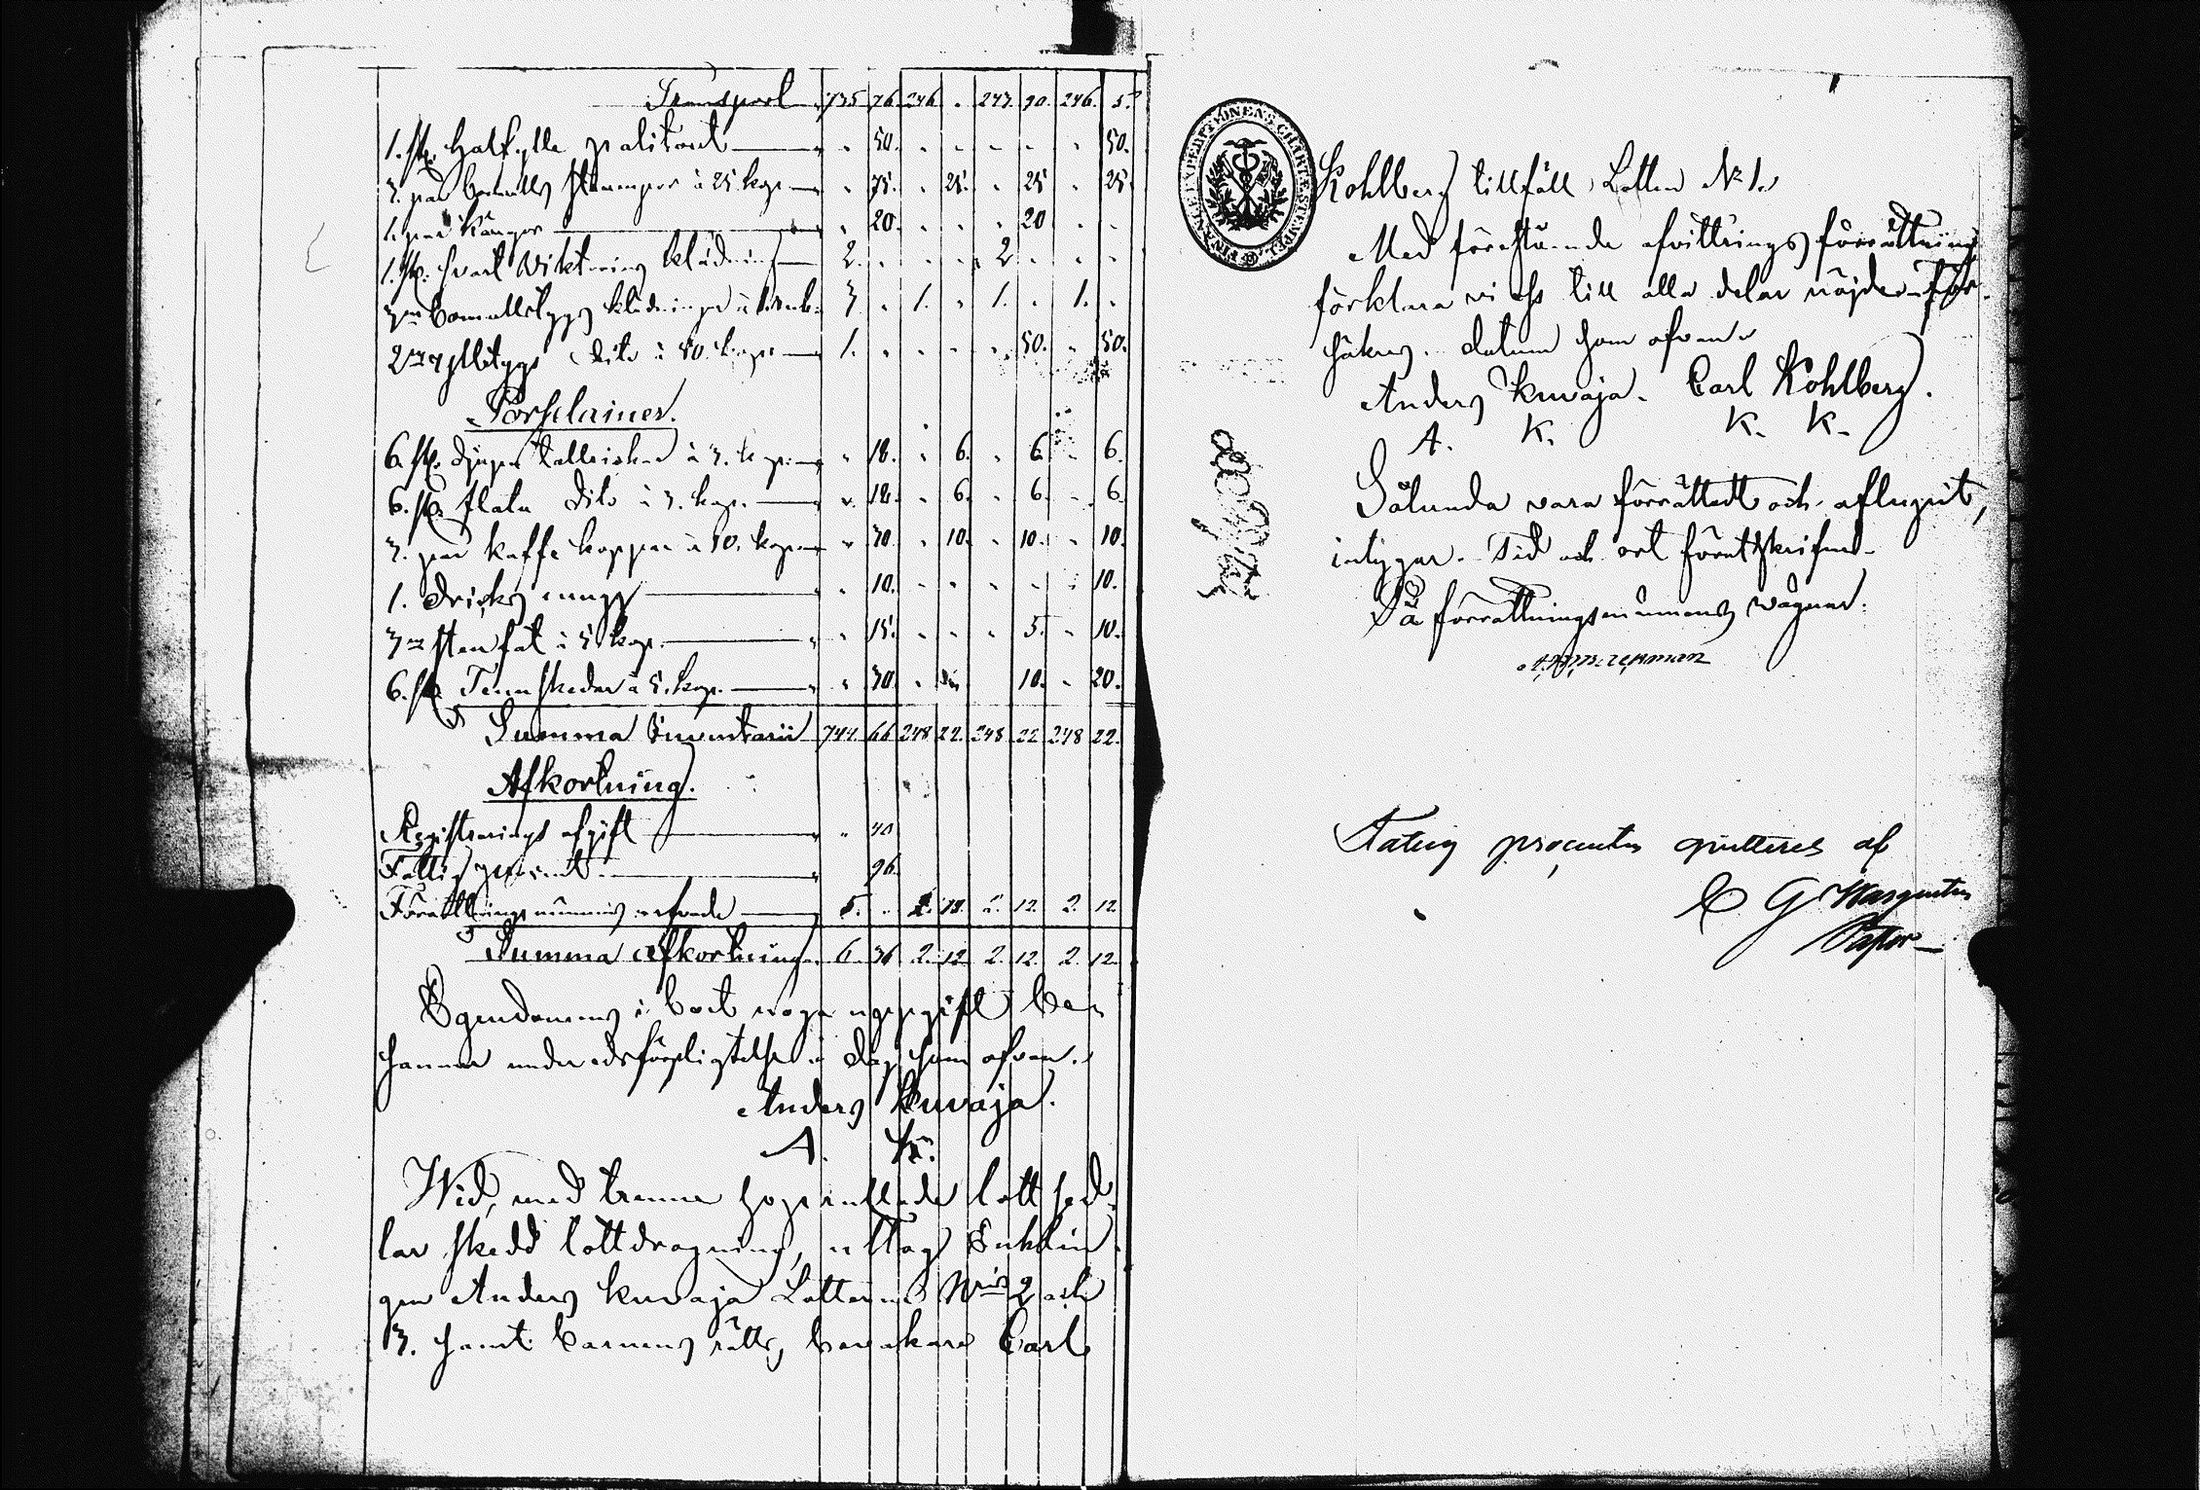 Transport 735. 76. 246. 247. 90. 246. 5.
1. st. Halfylle palitont " 50. 50.
3. par bomulls strumpor à 25 kop. " 75. 25. 25 25.
1. par kängor " 20. 20
1. st. svart klädning 2. 2
3ne Bomullstygs klädningar à 1. rub. 3 1. 1. 1.
2ne ylletygs dito à 50. kop. 1. 50. 50.
Porslainer.
6. st. djupa talleickar à 3. kop. " 18. 6. 6. 6.
6. st. flata dito à 3. kop. " 18. 6. 6. 6
3. par kaffe koppar à 10. kop. " 30. 10. 10. 10.
1. dricks mugg " 10. 10.
3ne stenfat à 5 kop. " 15. 5. 10.
6. st. Tennskedar à 5. kop. " 30. 10. 20.
Summa Inventarii 744. 66 248 22. 248 22 248 22.
Afkortning.
Registrerings afgift " 40
Fattig procent " 96.
Förrättningsmännens arfvode 5. 2. 12. 2. 12. 2. 12
Summa Afkortning 6. 36 2. 12 2. 12. 2. 12.
Egendomens i boet noga uppgift be-
sannar under edsförpligtelse dag som ofvan.
Anders Kuvaja.
A. K.
Wid, med trenne hoprullade lottsed-
lar skedd lottdragning, uttog Enklin-
gen Anders Kuvaja Lotterne Nris 2 och
3. samt barnens rätts bevakare Carl
Kohlberg tillföll Lotten № 1.
Med förestående afvittrings förrättning
förklara vi oss till alla delar nöjde för-
säkras. datum som ofvan.
Anders Kuvaja. Carl Kohlberg.
A. K. K. K.
Sålunda vara förrättadt och aflupit,
intygar. Tid och ort förutskrifne.
På förrättningsmännens vägnar:
Fattig procenten quitteras af
C G Wargentin
Pastor